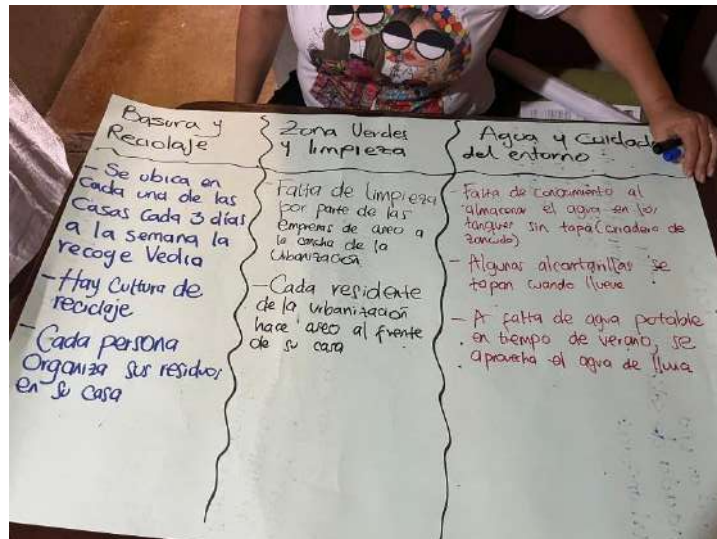 Basura y
Reciclaje
- Se ubica en
cada una de las
Casas cada 3 días
a la semana la
recoge Veolia
- Hay Cultura de
reciclaje
- Cada persona
Organiza sus residuos
en su casa
Zona Verdes
y limpieza
- Falta de limpieza
por parte de las
empresas de aseo a
la cancha de la
Urbanización
- Cada residente
de la urbanización
hace aseo al frente
de su casa
Agua y Cuidado
del entorno:
- Falta de conocimiento al
almacenar el agua en los
tanques sin tapa (criadero de
zancudo)
- Algunas alcantarillas se
tapan cuando llueve
- A falta de agua potable
en tiempo de verano, se
aprovecha el agua de lluvia